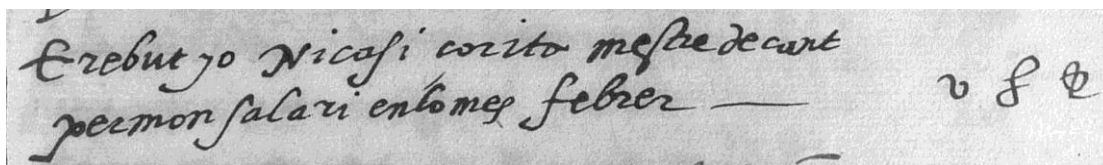 E rebut yo Nicasi corito mestre de cant
per mon salari en lo mes febrer — v